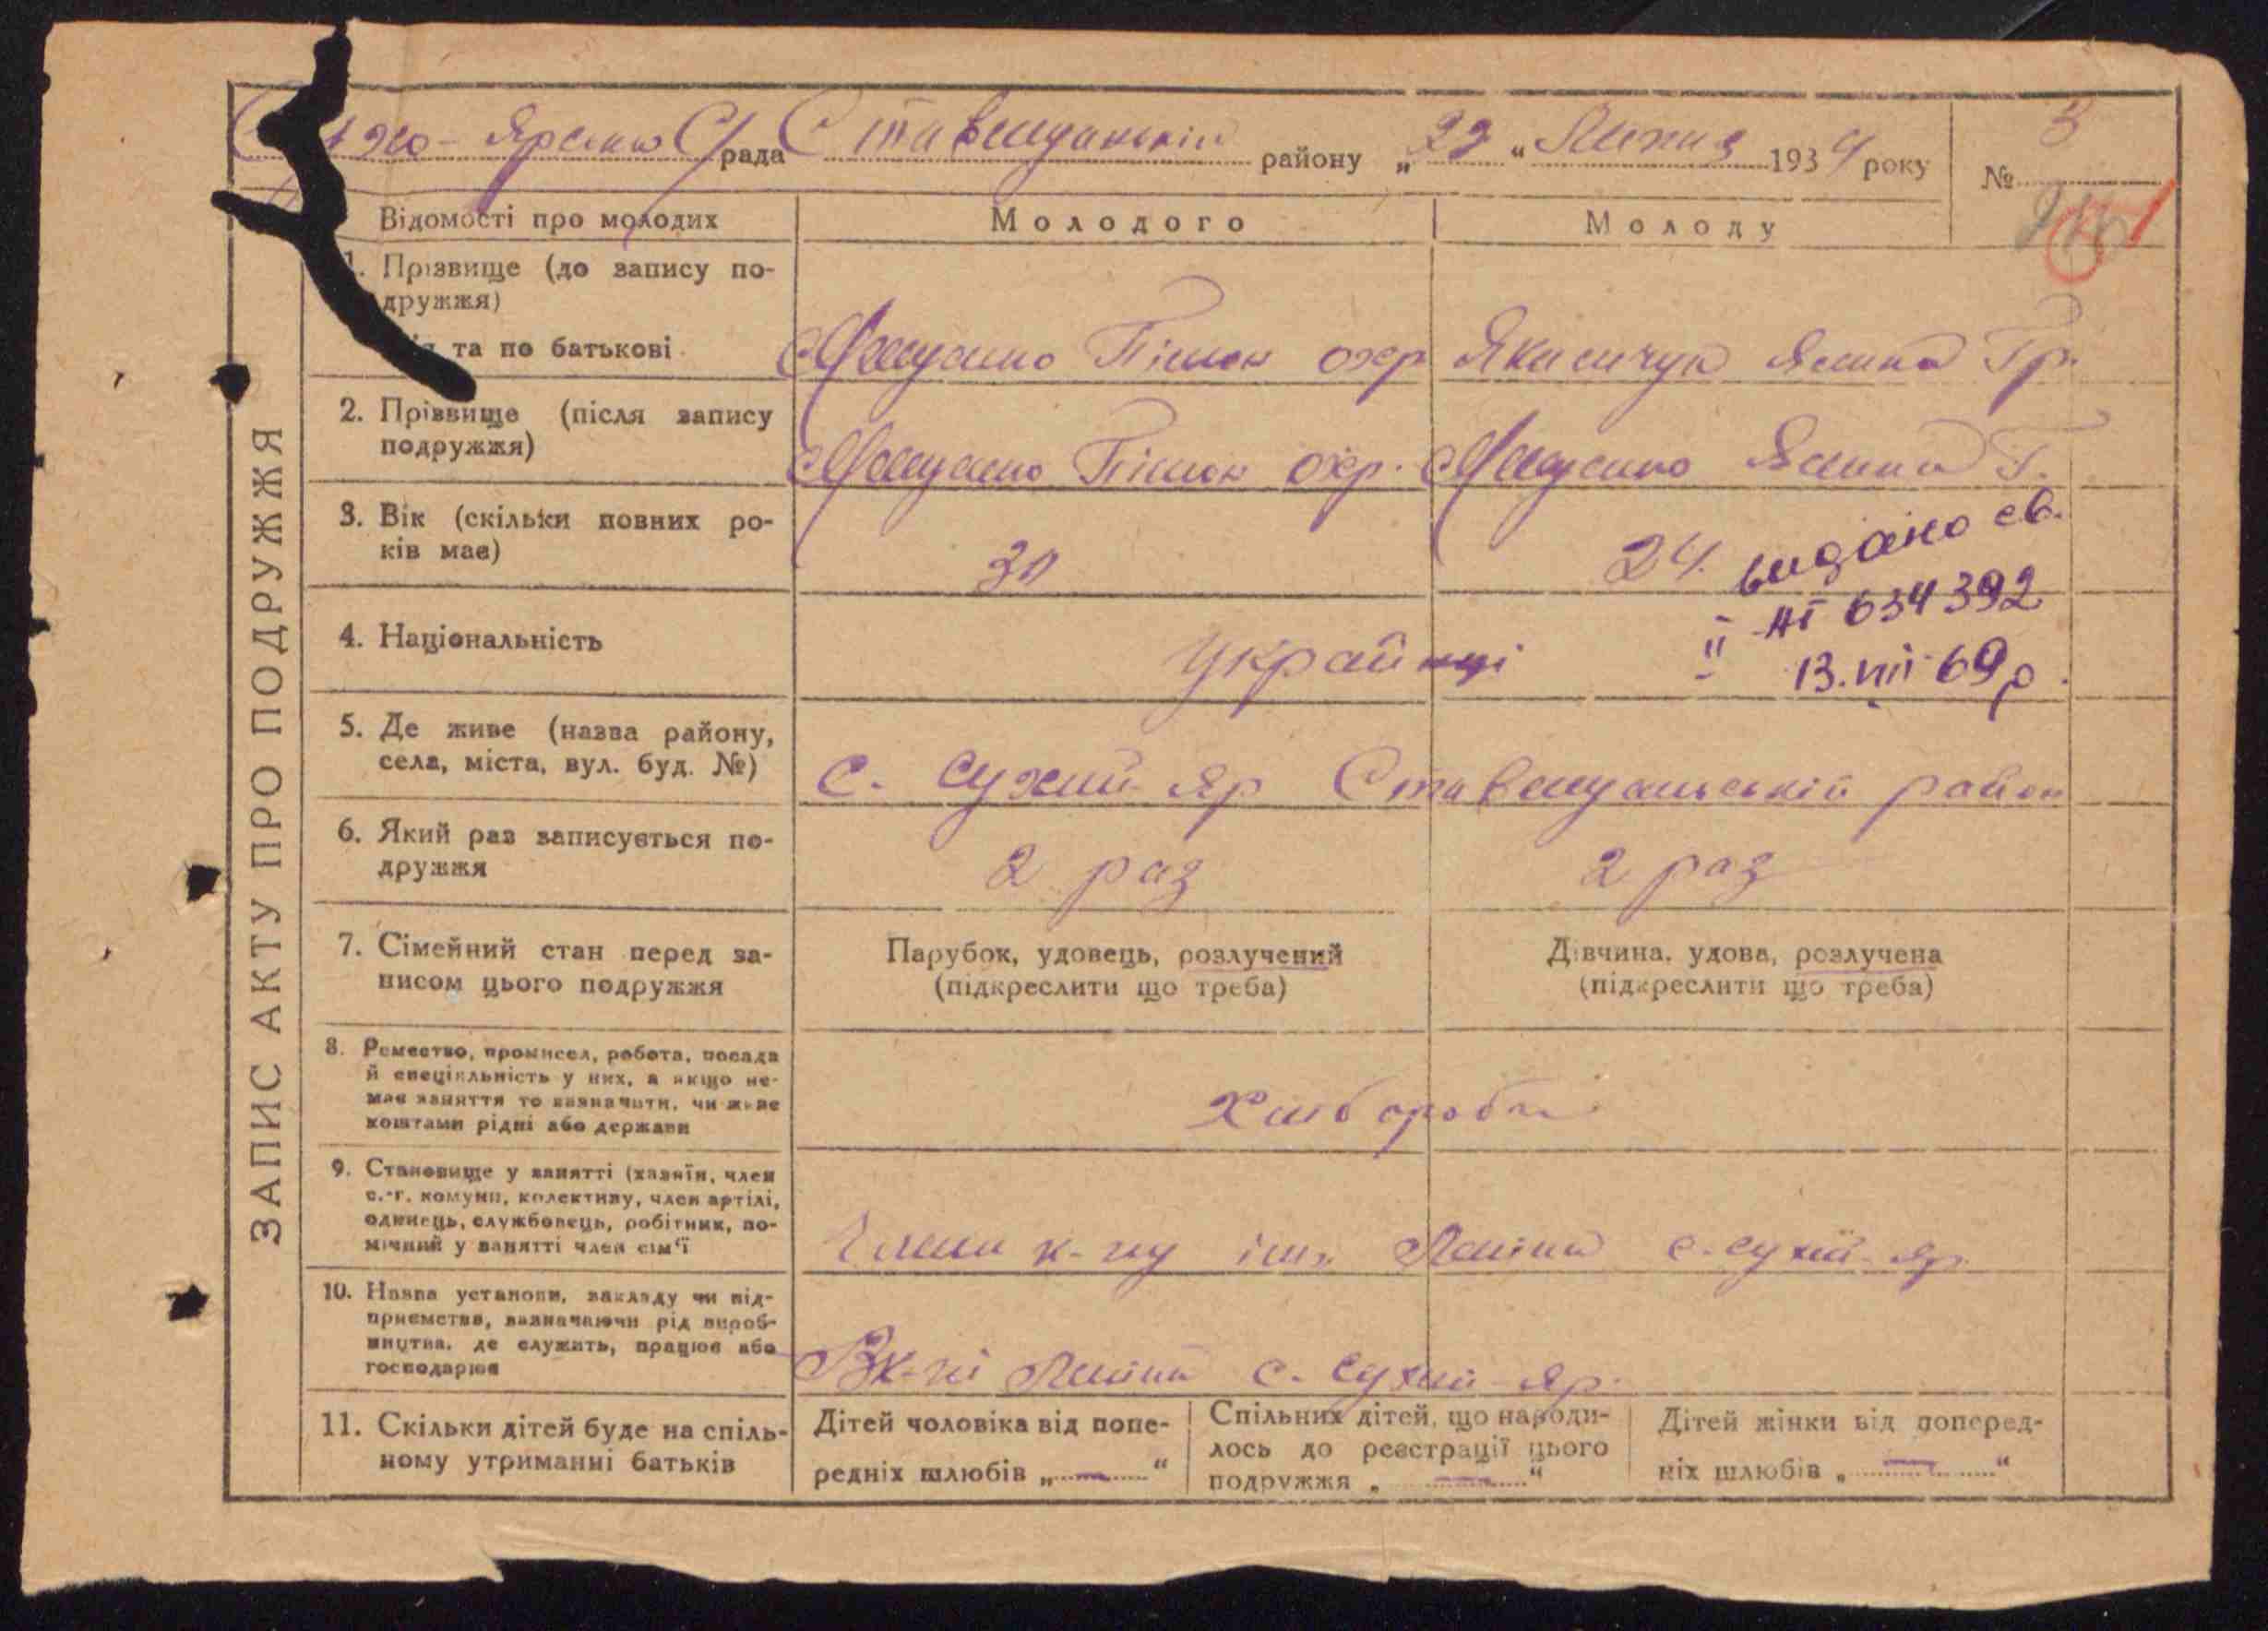 Сухо-Ярська С/рада Ставищанський району „22“ Липня 1934 року № 3
Відомості про молодих
Молодого
Молоду
ЗАПИС АКТУ ПРО ПОДРУЖЖЯ
1. Прізвище (до запису по-
дружжя)
та по батькові
Пімен охр
Якимчук Ялина Гр.
2. Прізвище (після запису
подружжя)
Пімен Охр.
Ялина Г.
3. Вік (скільки повних ро-
ків має)
30
24
видано св.
II АГ 634392
13.VIII 69 р.
4. Національність
Українці
5. Де живе (назва району,
села, міста, вул. буд. №)
с. Сухий-Яр Ставищанській район
6. Який раз записується по-
дружжя
2 раз
2 раз
7. Сімейний стан перед за-
писом цього подружжя
Парубок, удовець, розлучений
(підкреслити що треба)
Дівчина, удова, розлучена
(підкреслити що треба)
8. Ремество, промисел, робота, посада
й спеціяльність у них, а якщо не-
має заняття то зазначити, чи живе
коштами рідні або держави
Хлібороби
9. Становище у занятті (хазяїн, член
с.-г. комуни, колективу, член артілі,
одинець, службовець, робітник, по-
мічний у занятті член сім'ї
Члени к-пу ім. Леніна с. Сухий-Яр
10. Назва установи, закладу чи під-
приємства, зазначаючи рід вироб-
ництва, де служить, працює або
господарює
В к-пі Леніна с. Сухий-Яр.
11. Скільки дітей буде на спіль-
ному утриманні батьків
Дітей чоловіка від попе-
редніх шлюбів „—“
Спільних дітей, що народи-
лось до реєстрації цього
подружжя „—“
Дітей жінки від поперед-
ніх шлюбів „—“